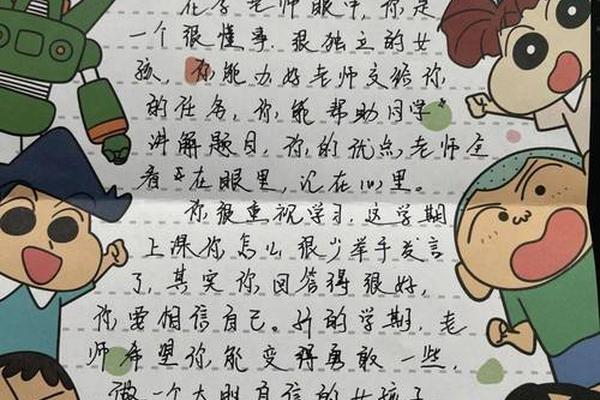 在李老师眼中，你是
一个很懂事、很独立的女
孩，你能办好老师交给你
的任务，你能帮助同学
讲解题目，你的优点老师全
看在眼里，记在心里。
你很重视学习，这学期
上课你怎么很少举手发言
了，其实你回答得很好，
你要相信自己。新的学期，老
师希望你能变得勇敢一些，
做一个大胆自信的女孩子